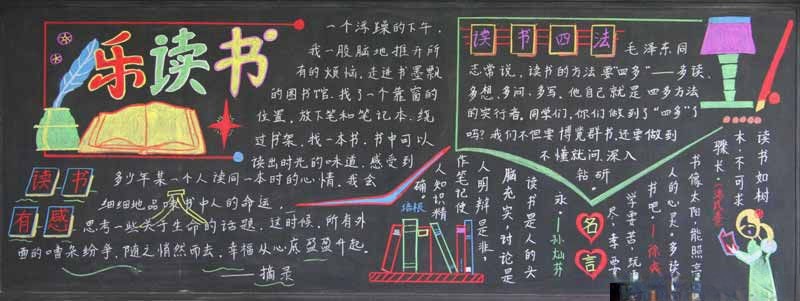 乐读书
一个浮躁的下午,
我一股脑地推开所
有的烦恼,走进书墨飘
的图书馆,找了一个靠窗的
位置,放下笔和笔记本,绕
过书架,找一本书,书中可以
读出时光的味道,感受到
多少年某一个人读同一本时的心情,我会
细细地品味书中人的命运,
思考一些关于生命的话题,这时候,所有外
面的嘈杂纷争,随之悄然而去,幸福从心底盈盈升起.
——摘录
读书
有感
读书四法
毛泽东同
志常说,读书的方法要“四多”——多读、
多想、多问、多写,他自己就是四多方法
的实行者,同学们,你们做到了“四多”了
吗?我们不但要博览群书,还要做到
不懂就问,深入
钻研.
名言
读书如树
木,不可求
骤长.
书像太阳,能照亮
人的心灵,多读
书吧.
学要苦,玩
尽
永.——孙灿芬
读书是人的头
脑充实,讨论是
人明辩是非,
作笔记使
人知识精
确.
培根